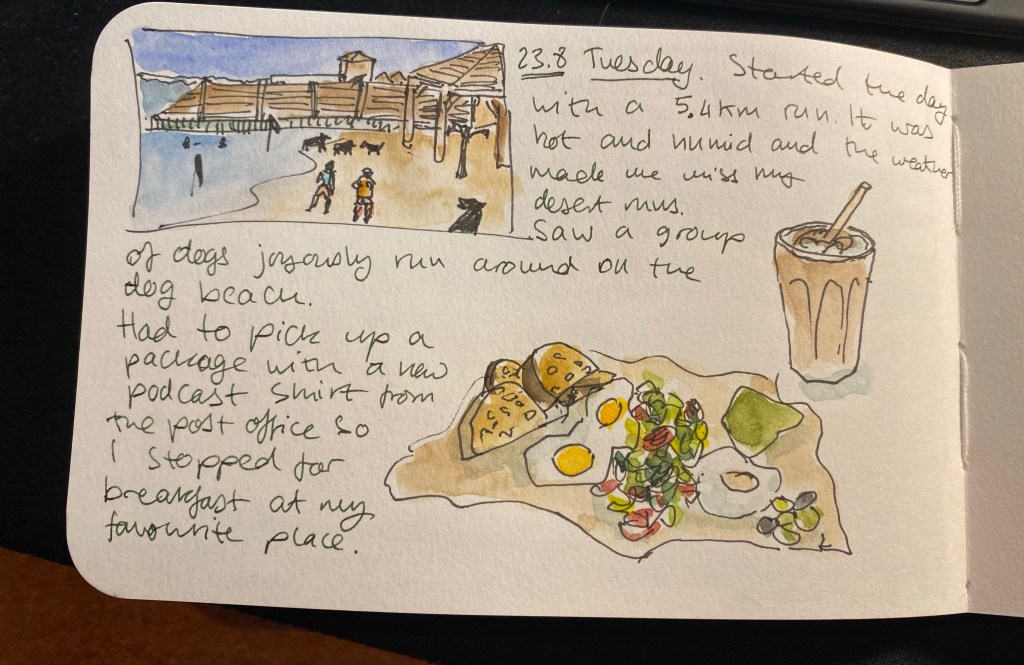 23.8 Tuesday. Started the day
with a 5.4km run. It was
hot and humid and the weather
made me miss my
desert runs.
Saw a group
of dogs joyously run around on the
dog beach.
Had to pick up a
package with a new
podcast shirt from
the post office so
I stopped for
breakfast at my
favourite place.